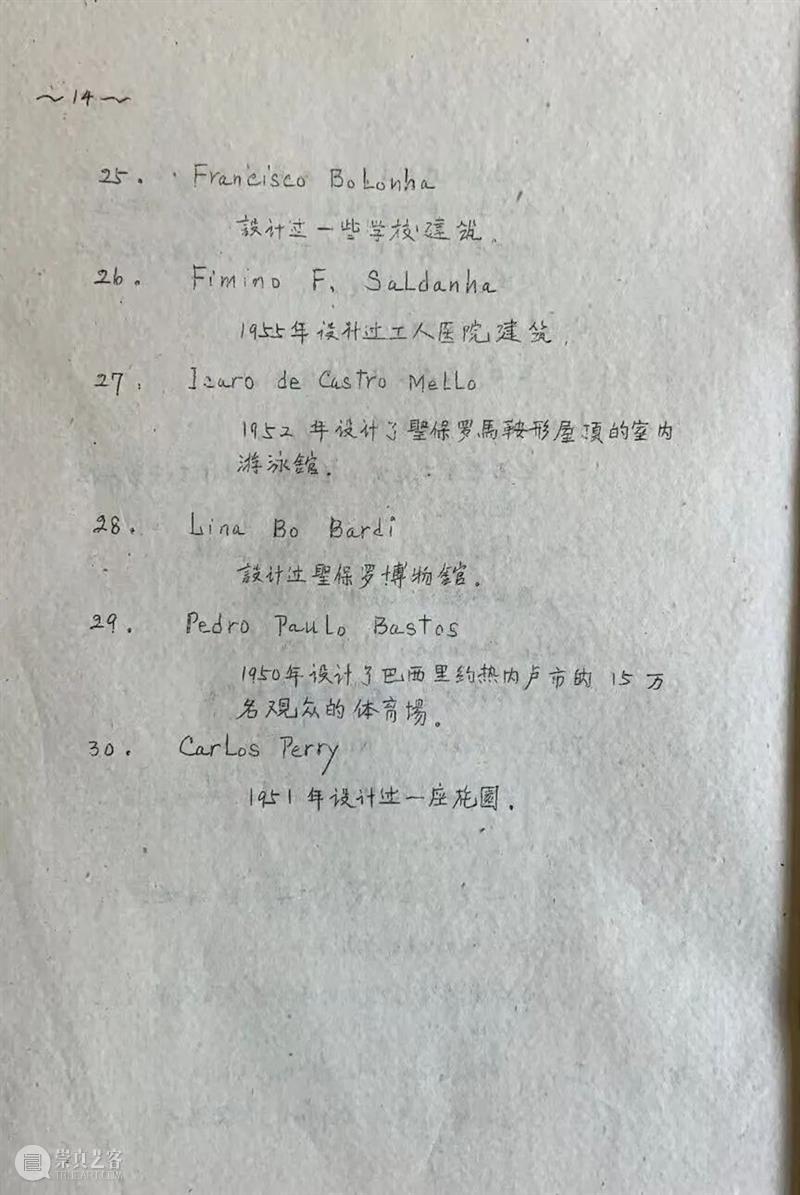 ~14~
25. Francisco Bolonha
設计过一些学校建筑.
26. Fimino F. Saldanha
1955年设计过工人医院建筑.
27. Izaro de Castro Mello
1952 年设计了聖保罗馬鞍形屋頂的室内
游泳館.
28. Lina Bo Bardi
設计过聖保罗博物館.
29. Pedro Paulo Bastos
1950年设计了巴西里约热内卢市的 15 万
名观众的体育場。
30. Carlos Perry
1951年设计过一座花園.
崇真艺客
TRUEART.COM